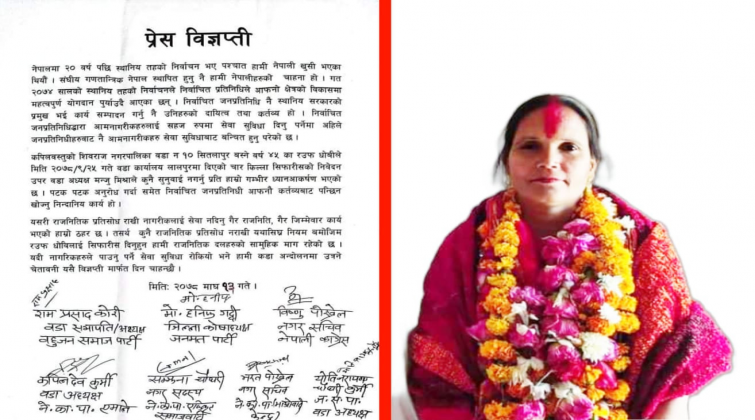 प्रेस विज्ञप्ती
नेपालमा २० बर्ष पछि स्थानिय तहको निर्वाचन भए पश्चात हामी नेपाली खुसी भएका
थियौं । संघीय गणतान्त्रिक नेपाल स्थापित हुनु नै हामी नेपालीहरुको चाहना हो । गत
२०७४ सालको स्थानिय तहको निर्वाचनले निर्वाचित प्रतिनिधिले आफनो क्षेत्रको विकासमा
महत्वपुर्ण योगदान पुर्याउदै आएका छन् । निर्वाचित जनप्रतिधि नै स्थानिय सरकारको
प्रमुख भई कार्य सम्पादन गर्नु नै उनिहरुको दायित्व तथा कर्तव्य हो । निर्वाचित
जनप्रतिनिधिद्वारा आमनागरीकहरुलाई सहज रुपमा सेवा सुविधा दिनु पर्नेमा अहिले
जनप्रतिनिधीहरुबाट नै आमनागरीकहरु सेवा सुविधाबाट बन्चित हुनु परेको छ ।
कपिलवस्तुको शिवराज नगरपालिका वडा न १० सितलापुर बस्ने बर्ष ४५ का रउफ धोबीले
मिति २०७८/९/२५ गते वडा कार्यालय लालपुरमा दिएको चार किल्ला सिफारीसको निवेदन
उपर वडा अध्यक्ष मन्जु मिश्राले कुनै सुनुवाई नगर्नु प्रति हाम्रो गम्भीर ध्यानआकर्षण भएको छ
। पटक पटक अनुरोध गर्दा समेत निर्वाचित जनप्रतिनिधी आफनौ कर्तव्यबाट पन्छिन
खोज्नु निन्दानिय कार्य हो ।
यसरी राजनितिक प्रतिसोध राखी नागरीकलाई सेवा नदिनु गैर राजनिति, गैर जिम्मेवार कार्य
भएको हाम्रो ठहर छ । तसर्थ कुनै राजनितिक प्रतिसोध नराखी यथासिघ्र नियम बमोजिम
रउफ धोविलाई सिफारीस दिनुहुन हामी राजनितिक दलहरुको सामुहिक माग रहेको छ ।
यदी नागरिकहरुले पाउनु पर्ने सेवा सुविधा रोकियो भने हामी कडा अन्दोलनमा उत्रने
चेतावनी यसै विज्ञप्ती मार्फत दिन चाहन्छौ ।
मितिः २०७८ माघ १३ गते ।
मो. हनीफ
राम प्रसाद कोरी मो. हनिफ गद्दी विष्णु पोखरेल
वडा सभापति/अध्यक्ष जिल्ला कोषाध्यक्ष नगर सचिव
बहुजन समाज पार्टी जनमत पार्टी नेपाली काग्रेस
कपिल देव कुर्मी चौधरी भरत पोखरेल
वडा अध्यक्ष नगर सदस्य सचिव चौधरी कुर्मी
ने.का.पा. एमाले ज.स.पा.
वडा अध्यक्ष